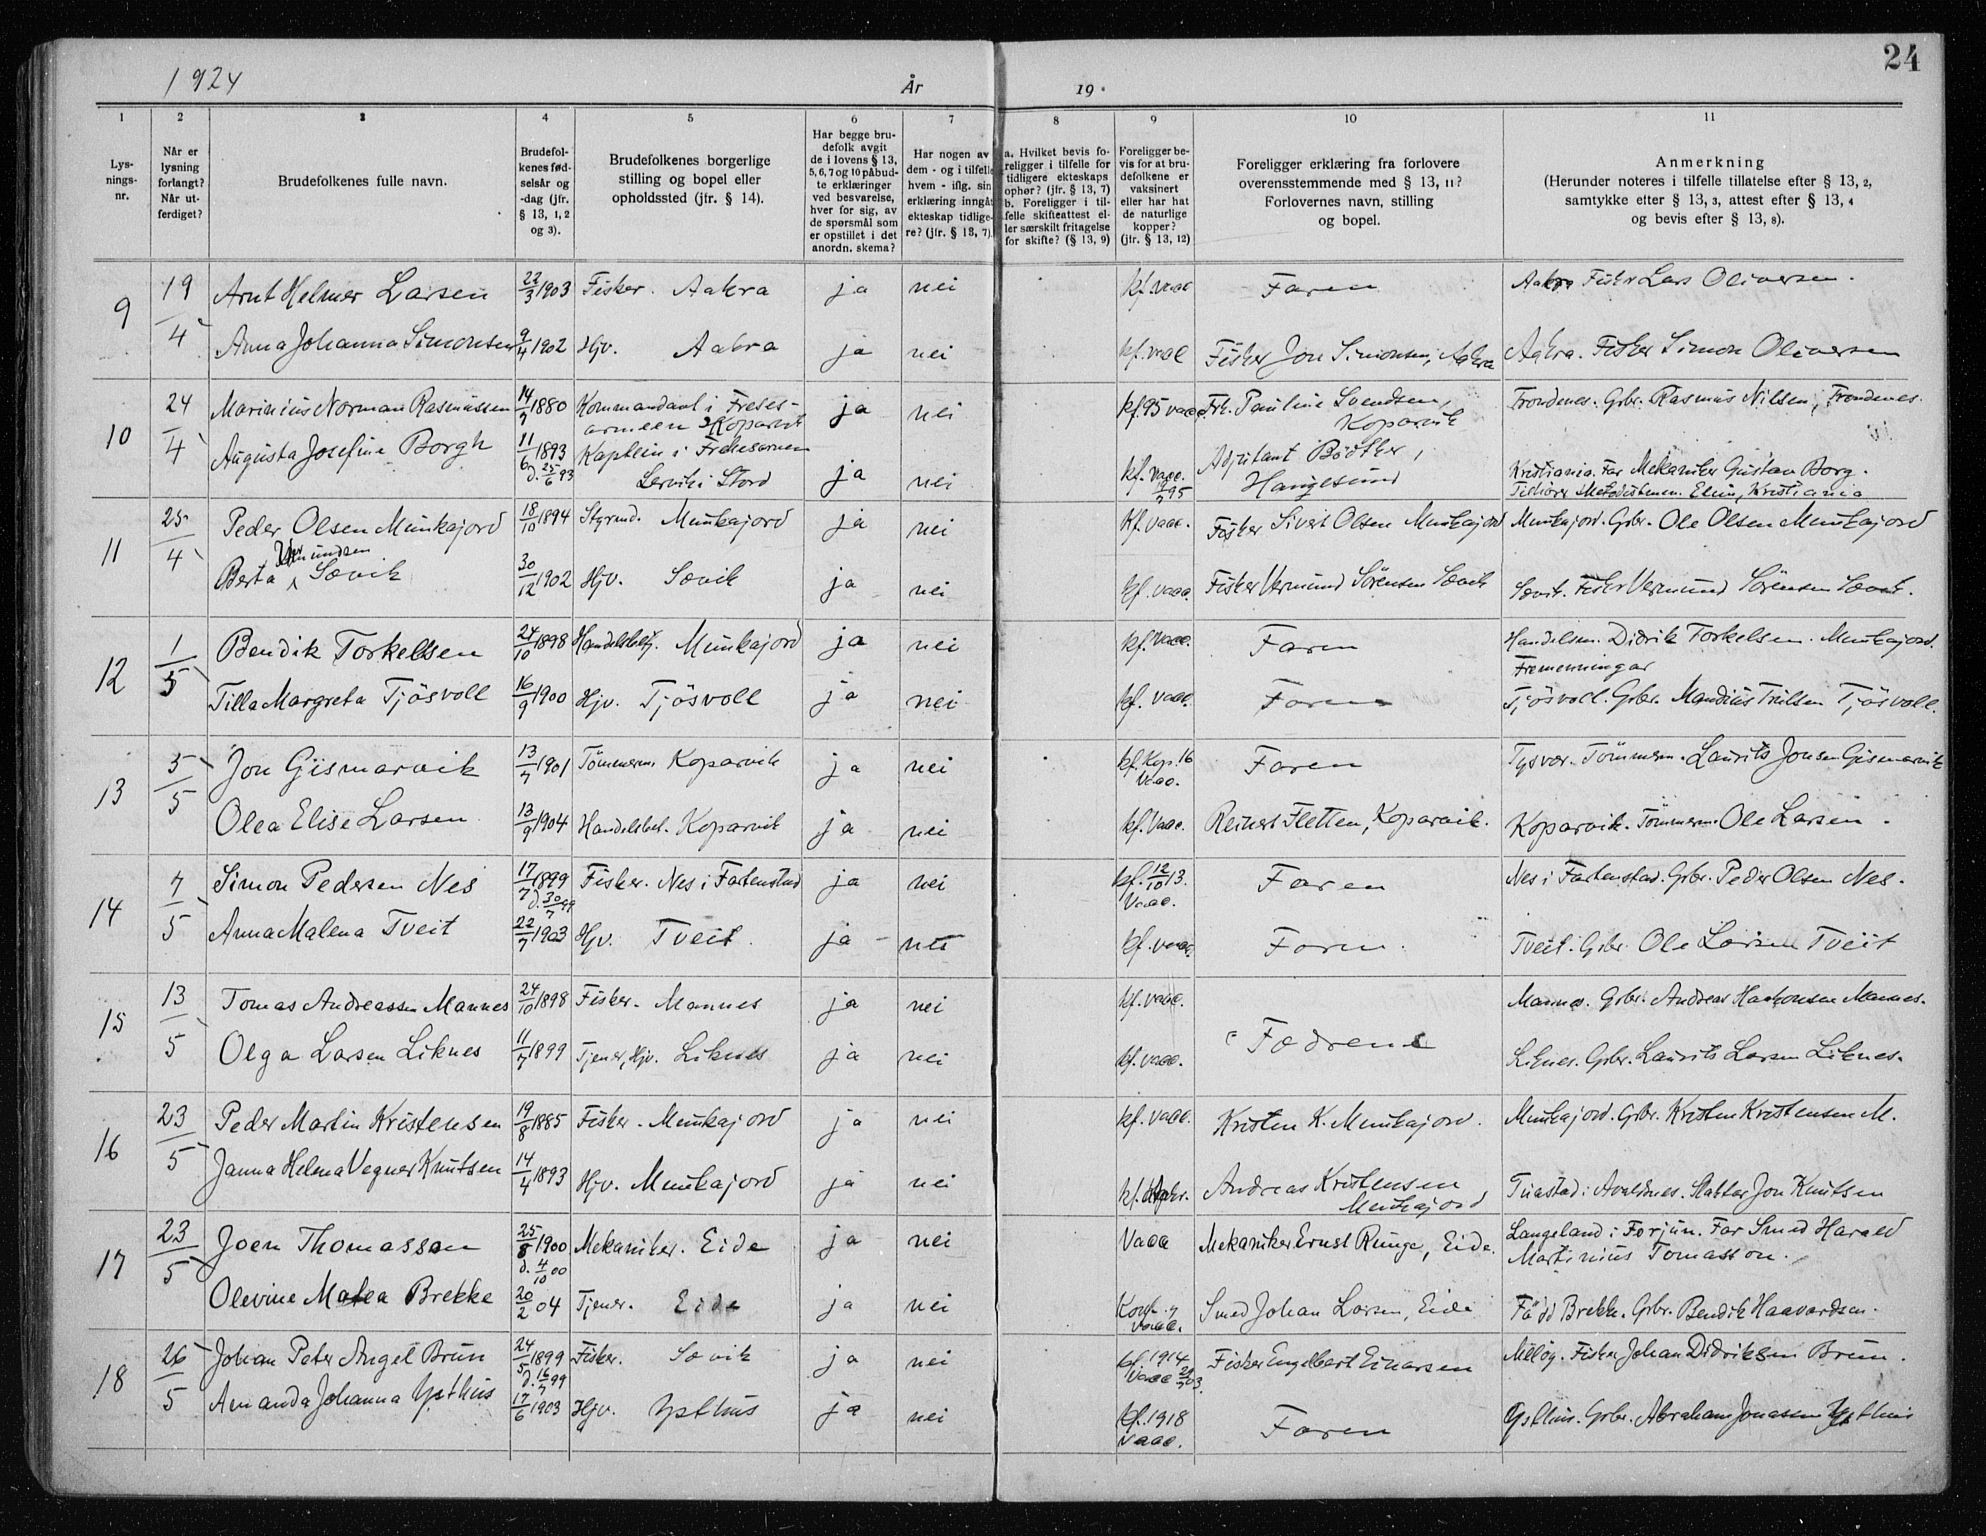 24
1924 År 19
1 2 3 4 5 6 7 8 9 10 11
Lysnings-nr.
Når er lysning forlangt? Når utferdiget?
Brudefolkenes fulle navn.
Brudefolkenes fødselsår og -dag (jfr. § 13, 1, 2 og 3).
Brudefolkenes borgerlige stilling og bopel eller opholdssted (jfr. § 14).
Har begge brudefolk avgit de i lovens § 13, 5, 6, 7 og 10 påbudte erklæringer ved besvarelse, hver for sig, av de spørsmål som er opstillet i det anordn. skema?
Har nogen av dem - og i tilfelle hvem - iflg. sin erklæring inngåt ekteskap tidligere? (jfr. § 13, 7).
a. Hvilket bevis foreligger i tilfelle for tidligere ekteskaps ophør? (jfr. § 13, 7) b. Foreligger i tilfelle skifteattest eller særskilt fritagelse for skifte? (§ 13, 9)
Foreligger bevis for at brudefolkene er vaksinert eller har hat de naturlige kopper? (jfr. § 13, 12)
Foreligger erklæring fra forlovere overensstemmende med § 13, 11? Forlovernes navn, stilling og bopel.
Anmerkning (Herunder noteres i tilfelle tillatelse efter § 13, 2, samtykke efter § 13, 3, attest efter § 13, 4 og bevis efter § 13, 8).
9 19/4 Arnt Helmer Larsen 22/3 1903 Fisker. Aakra ja nei kf. vacc Faren Aakra Fisker Lars Oliversen.
Anna Johanna Simonsen 9/4 1902 Hjv. Aakra ja nei kf. vacc Fisker Jon Simonsen, Aakra Aakra. Fisker Simon Oliversen
10 24/4 Marinius Norman Rasmussen 14/7 1880 Kommandant i Frelsesarmeen Kopervik ja nei kf 95 vacc Frk. Pauline Svendsen, Kopervik Trondenes. Gbr. Rasmus Nilsen, Trondenes.
Augusta Josefine Borgh 11/6 1893 d. 25/6 93 Kaptein i Frelsesarmeen Lervik i Stord ja nei kf. vacc. 95 Adjutant Bødtker, Haugesund Kristiania. Far Mekaniker Gustav Borg. Tilhører Metodistmen. Elim, Kristiania
11 25/4 Peder Olsen Munkajord 18/10 1894 Styrmd. Munkajord ja nei kf. vacc. Fisker Sivert Olsen Munkajord Munkajord. Gbr. Ole Olsen Munkajord
Berta Vermundsen Sævik 30/12 1902 Hjv. Sævik ja nei kf. vacc. Fisker Vermund Sörensen Sævik Sævik. Fisker Vermund Sörensen Sævik.
12 1/5 Bendik Torkelsen 24/10 1898 Handelsbetj. Munkajord ja nei kf. vacc. Faren Handelsm. Didrik Torkelsen. Munkajord. Fremenningar
Tilla Margreta Tjösvoll 16/9 1900 Hjv. Tjösvoll ja nei kf. vacc. Faren Tjösvoll. Gbr. Mandius Trulsen Tjösvoll.
13 5/5 Jon Gismarvik 13/7 1901 Tömmerm. Kopervik ja nei kf. Kop. 16 Vacc. Faren Tysvær. Tömmerm. Laurits Jonsen Gismarvik
Olea Elise Larsen 13/9 1904 Handelsbet. Kopervik ja nei kf. Vacc. Reinert Fletten, Kopervik. Kopervik. Tömmerm. Ole Larsen.
14 7/5 Simon Pedersen Nes 17/7 1899 d. 30/7 99 Fisker. Nes i Fartenstad ja nei kf. 12/10 13. Vacc. Faren Nes i Fartenstad. Gbr. Peder Olsen Nes.
Anna Malena Tveit 22/7 1903 Hjv. Tveit. ja nei kf. vacc Faren. Tveit. Gbr. Ole Larsen Tveit
15 13/5 Tomas Andreassen Mannes 24/10 1898 Fisker. Mannes ja nei kf. vacc. Fædrene Mannes. Gbr. Andreas Haakonsen Mannes.
Olga Larsen Liknes 11/7 1899 Tjener, Hjv. Liknes ja nei kf. vacc. Liknes. Gbr. Laurits Larsen Liknes.
16 23/5 Peder Martin Kristensen 19/8 1885 Fisker. Munkajord ja nei kf. vacc. Kristen K. Munkajord. Munkajord. Gbr. Kristen Kristensen M.
Janna Helena Vegner Knutsen 14/4 1893 Hjv. Munkajord ja nei kf. Andreas Kristensen Munkajord Tuastad i Avaldnes. Slakter Jon Knutsen
17 23/5 Joen Thomassen 25/8 1900 d. 4/10 00 Mekaniker. Eide ja nei Vacc Mekaniker Ernst Runge, Eide. Langeland i Forjun. Far Smed Harald Martinius Tomasson.
Olevine Matea Brekke 20/2 04 Tjener. Eide ja nei Konf. y vacc. Smed Johan Larsen, Eide Född Brekke. Gbr. Bendik Haavardsen.
18 26/5 Johan Peter Angel Brun 24/5 1899 d. 16/7 99 Fisker. Sævik ja nei kf. 1914 Vacc 03. Fisker Engelbert Einarsen Fisker Johan Didriksen Brun.
Amanda Johanna Ysthus 17/6 1903 Hjv. Ysthus ja nei kf. 1918 vacc. Faren Ysthus. Gbr. Abraham Jonassen Ysthus